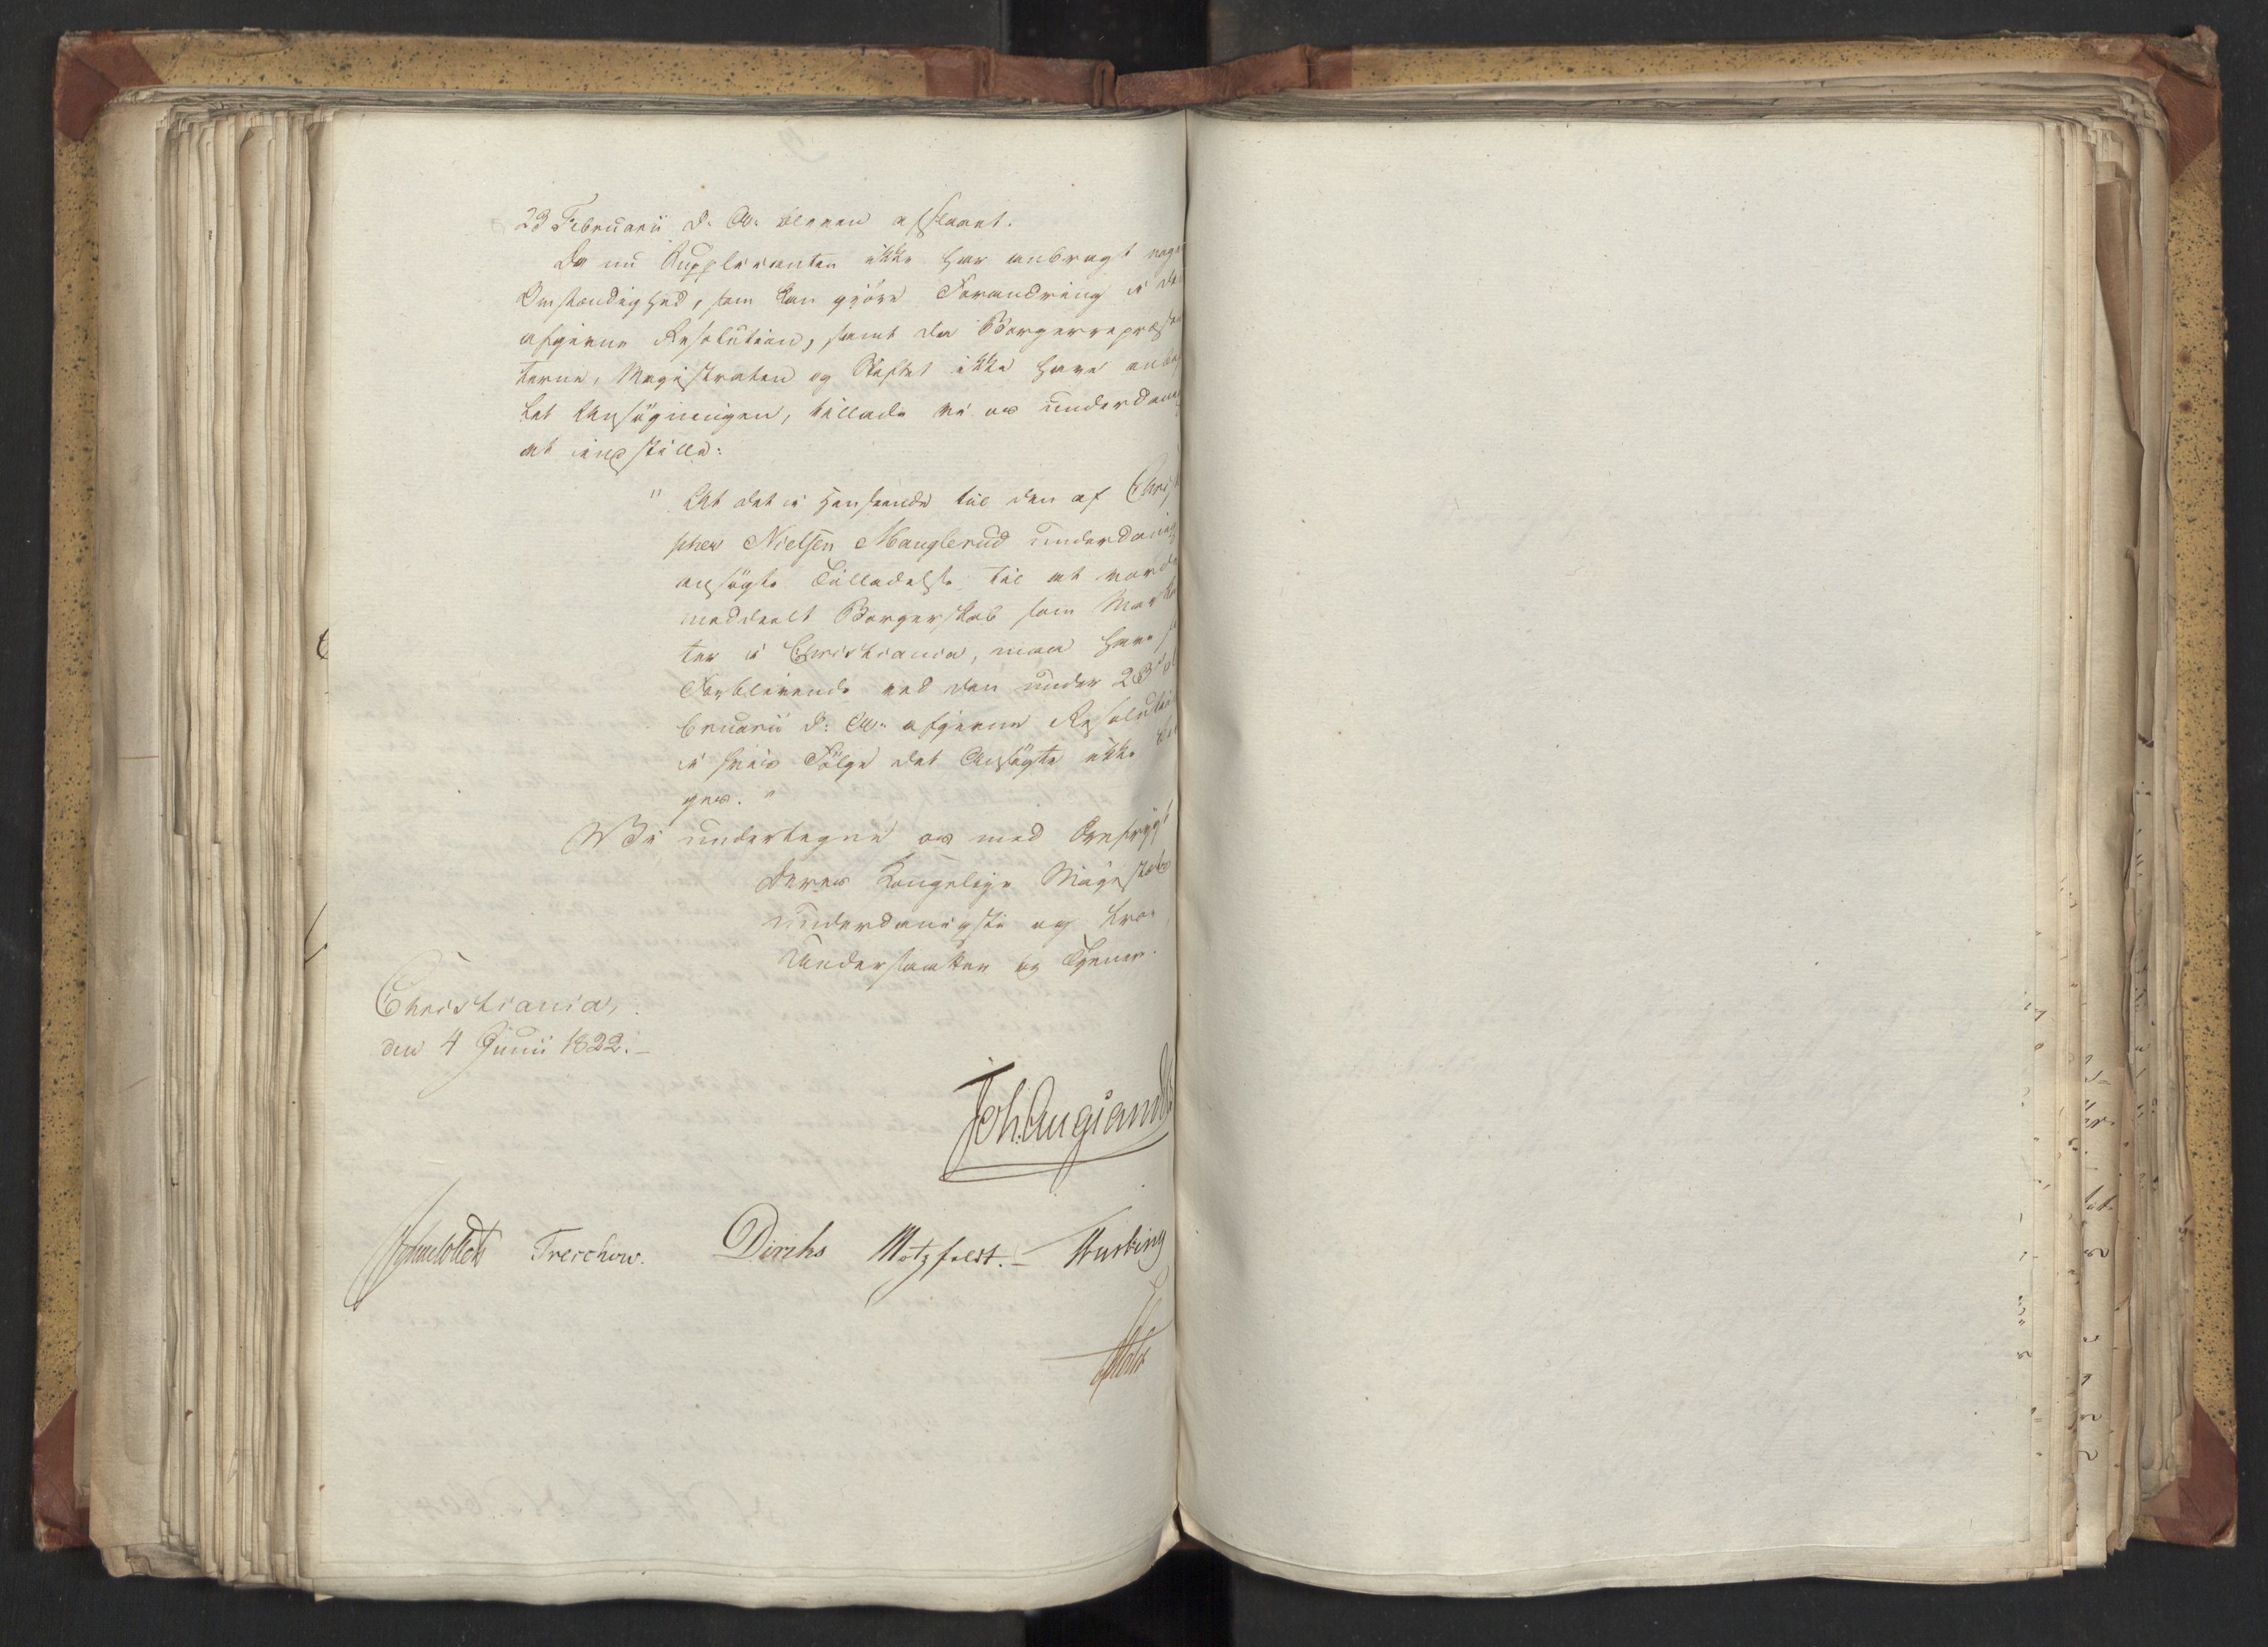 23 Februarii d. A. bleven afslaaet.
Da nu Supplicanten ikke har anbragt nogen
Omstændighed, som kan gjöre Forandring i den
afgivne Resolution, samt da Borgerrepræsen
terne, Magistraten og Stiftet ikke have anbefa
let Ansögningen, tillade vi os underdanig
at indstille:
" At det i Henseende til den af Christo
pher Nielsen Manglerud underdanig
ansögte Tilladelse til at vorde
meddeelt Borgerskab som Marke
ter i Christiania, maa have sit
Forblivende ved den under 23 Fe
bruarii d. A. afgivne Resolution
i hvis Fölge det Ansögte ikke
ges. "
Vi undertegne os med Ærefrygt
Deres Kongelige Majestæts
underdanigste og troe
Undersaatter og Tjener.
Christiania,
den 4 Junii 1822.
Joh. Aug Sandels
Sommerhielm Treschow. Diriks Motzfeldt. Fasting
Holst